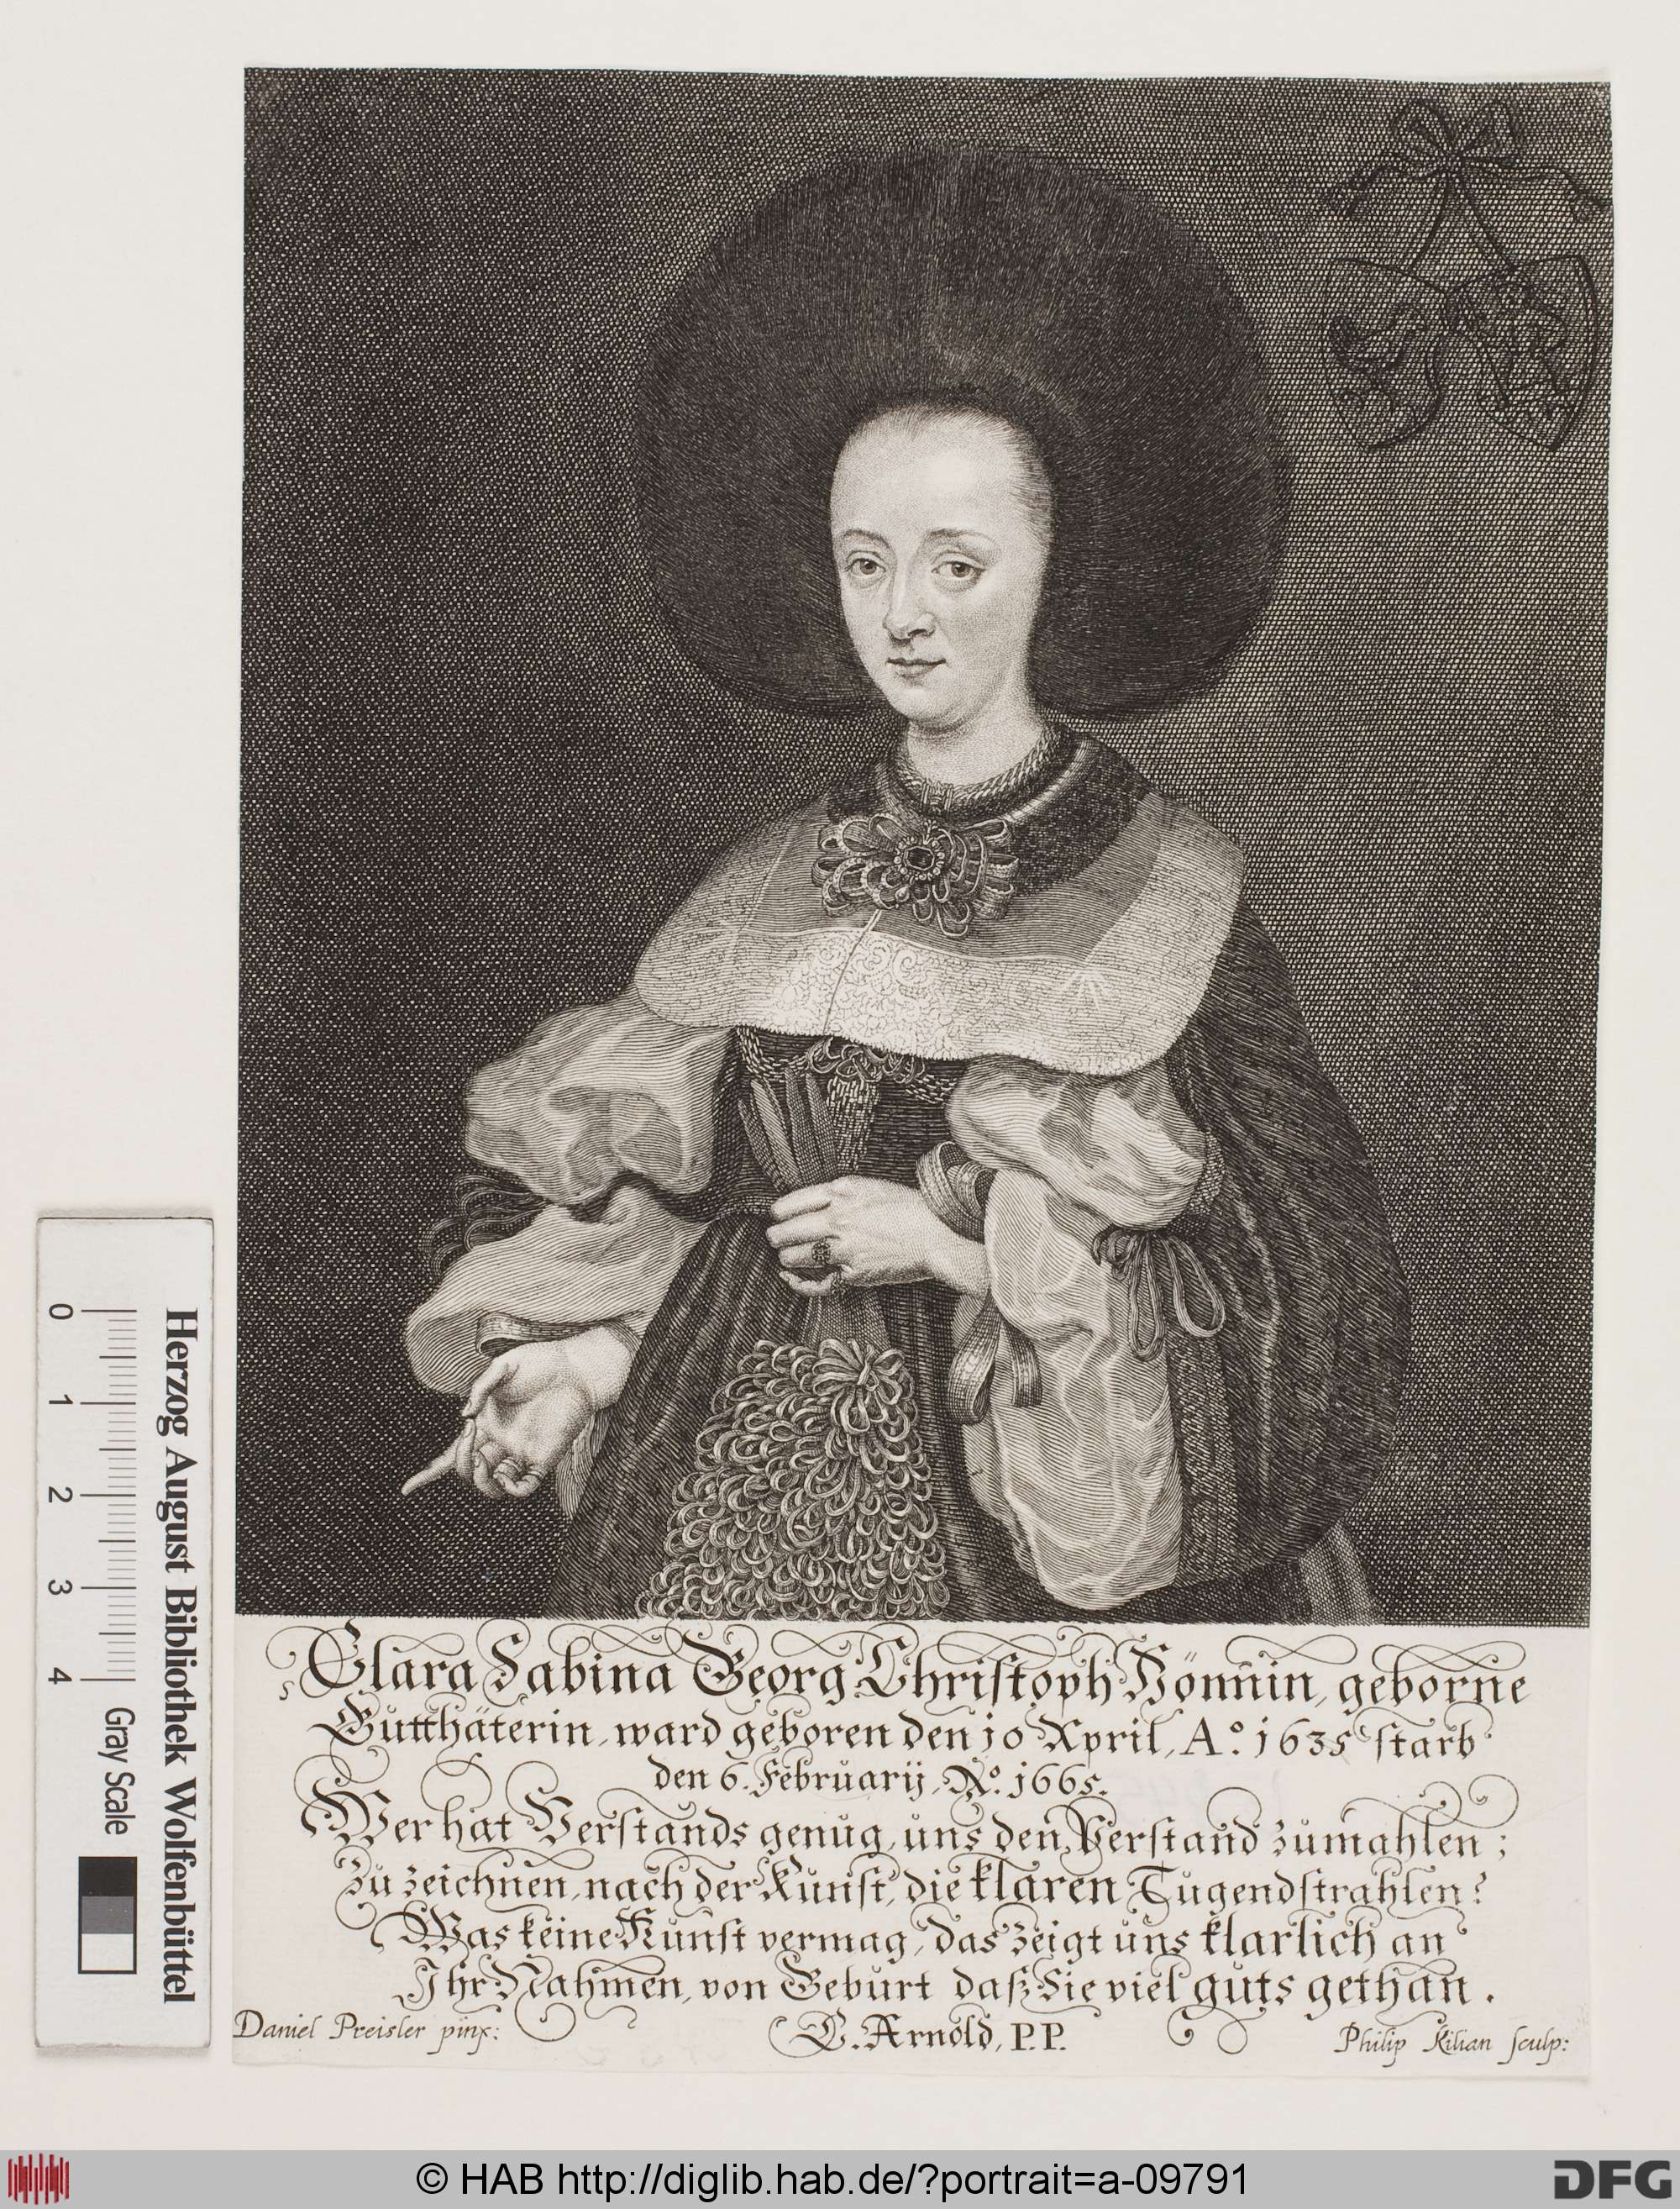 Clara Sabina Georg Christoph Pömnin, geborne
Gutthäterin, ward geboren den 10 April, A.º 1635 starb
den 6. Februarij, Aº. 1665.
Wer hat Verstands genug, uns den Verstand zumahlen;
Zu zeichnen, nach der Kunst, die klaren Tugendstrahlen?
Was keine Kunst vermag, das zeigt uns klarlich an
Ihr Nahmen, von Geburt daß Sie viel guts gethan.
Daniel Preisler pinx:
C. Arnold, P.P.
Philip Kilian sculp:
Herzog August Bibliothek Wolfenbüttel
0 1 2 3 4 Gray Scale
© HAB http://diglib.hab.de/?portrait=a-09791
DFG